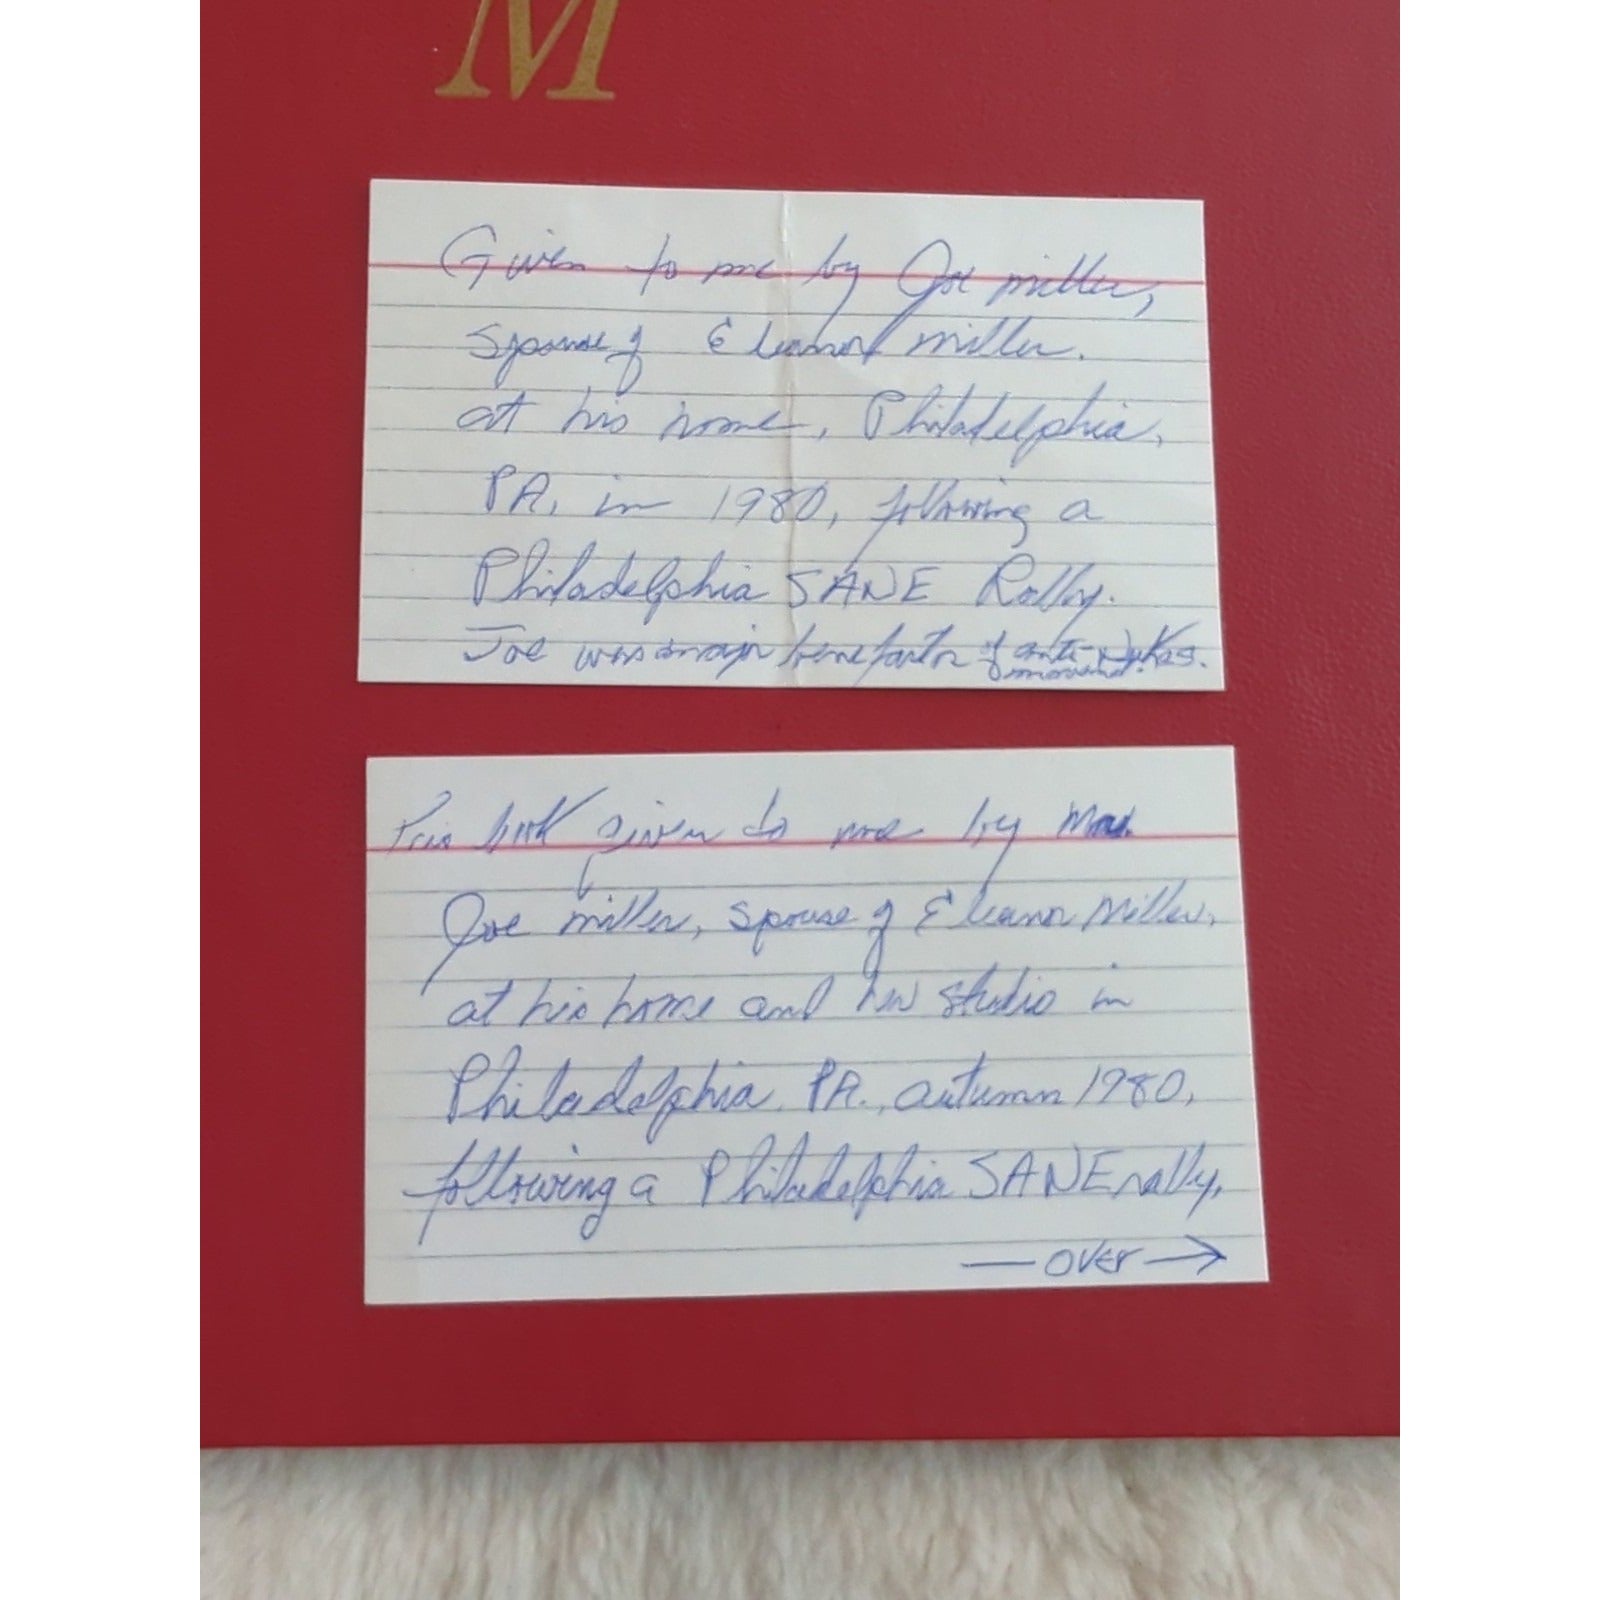 M
Given to me by Joe Miller,
spouse of Eleanor Miller.
at his home, Philadelphia,
PA, in 1980, following a
Philadelphia SANE Rally.
Joe was major benefactor of anti-Nukes.
movement.
This book given to me by
Joe Miller, spouse of Eleanor Miller,
at his home and her studio in
Philadelphia PA., autumn 1980,
following a Philadelphia SANE rally,
— OVER →